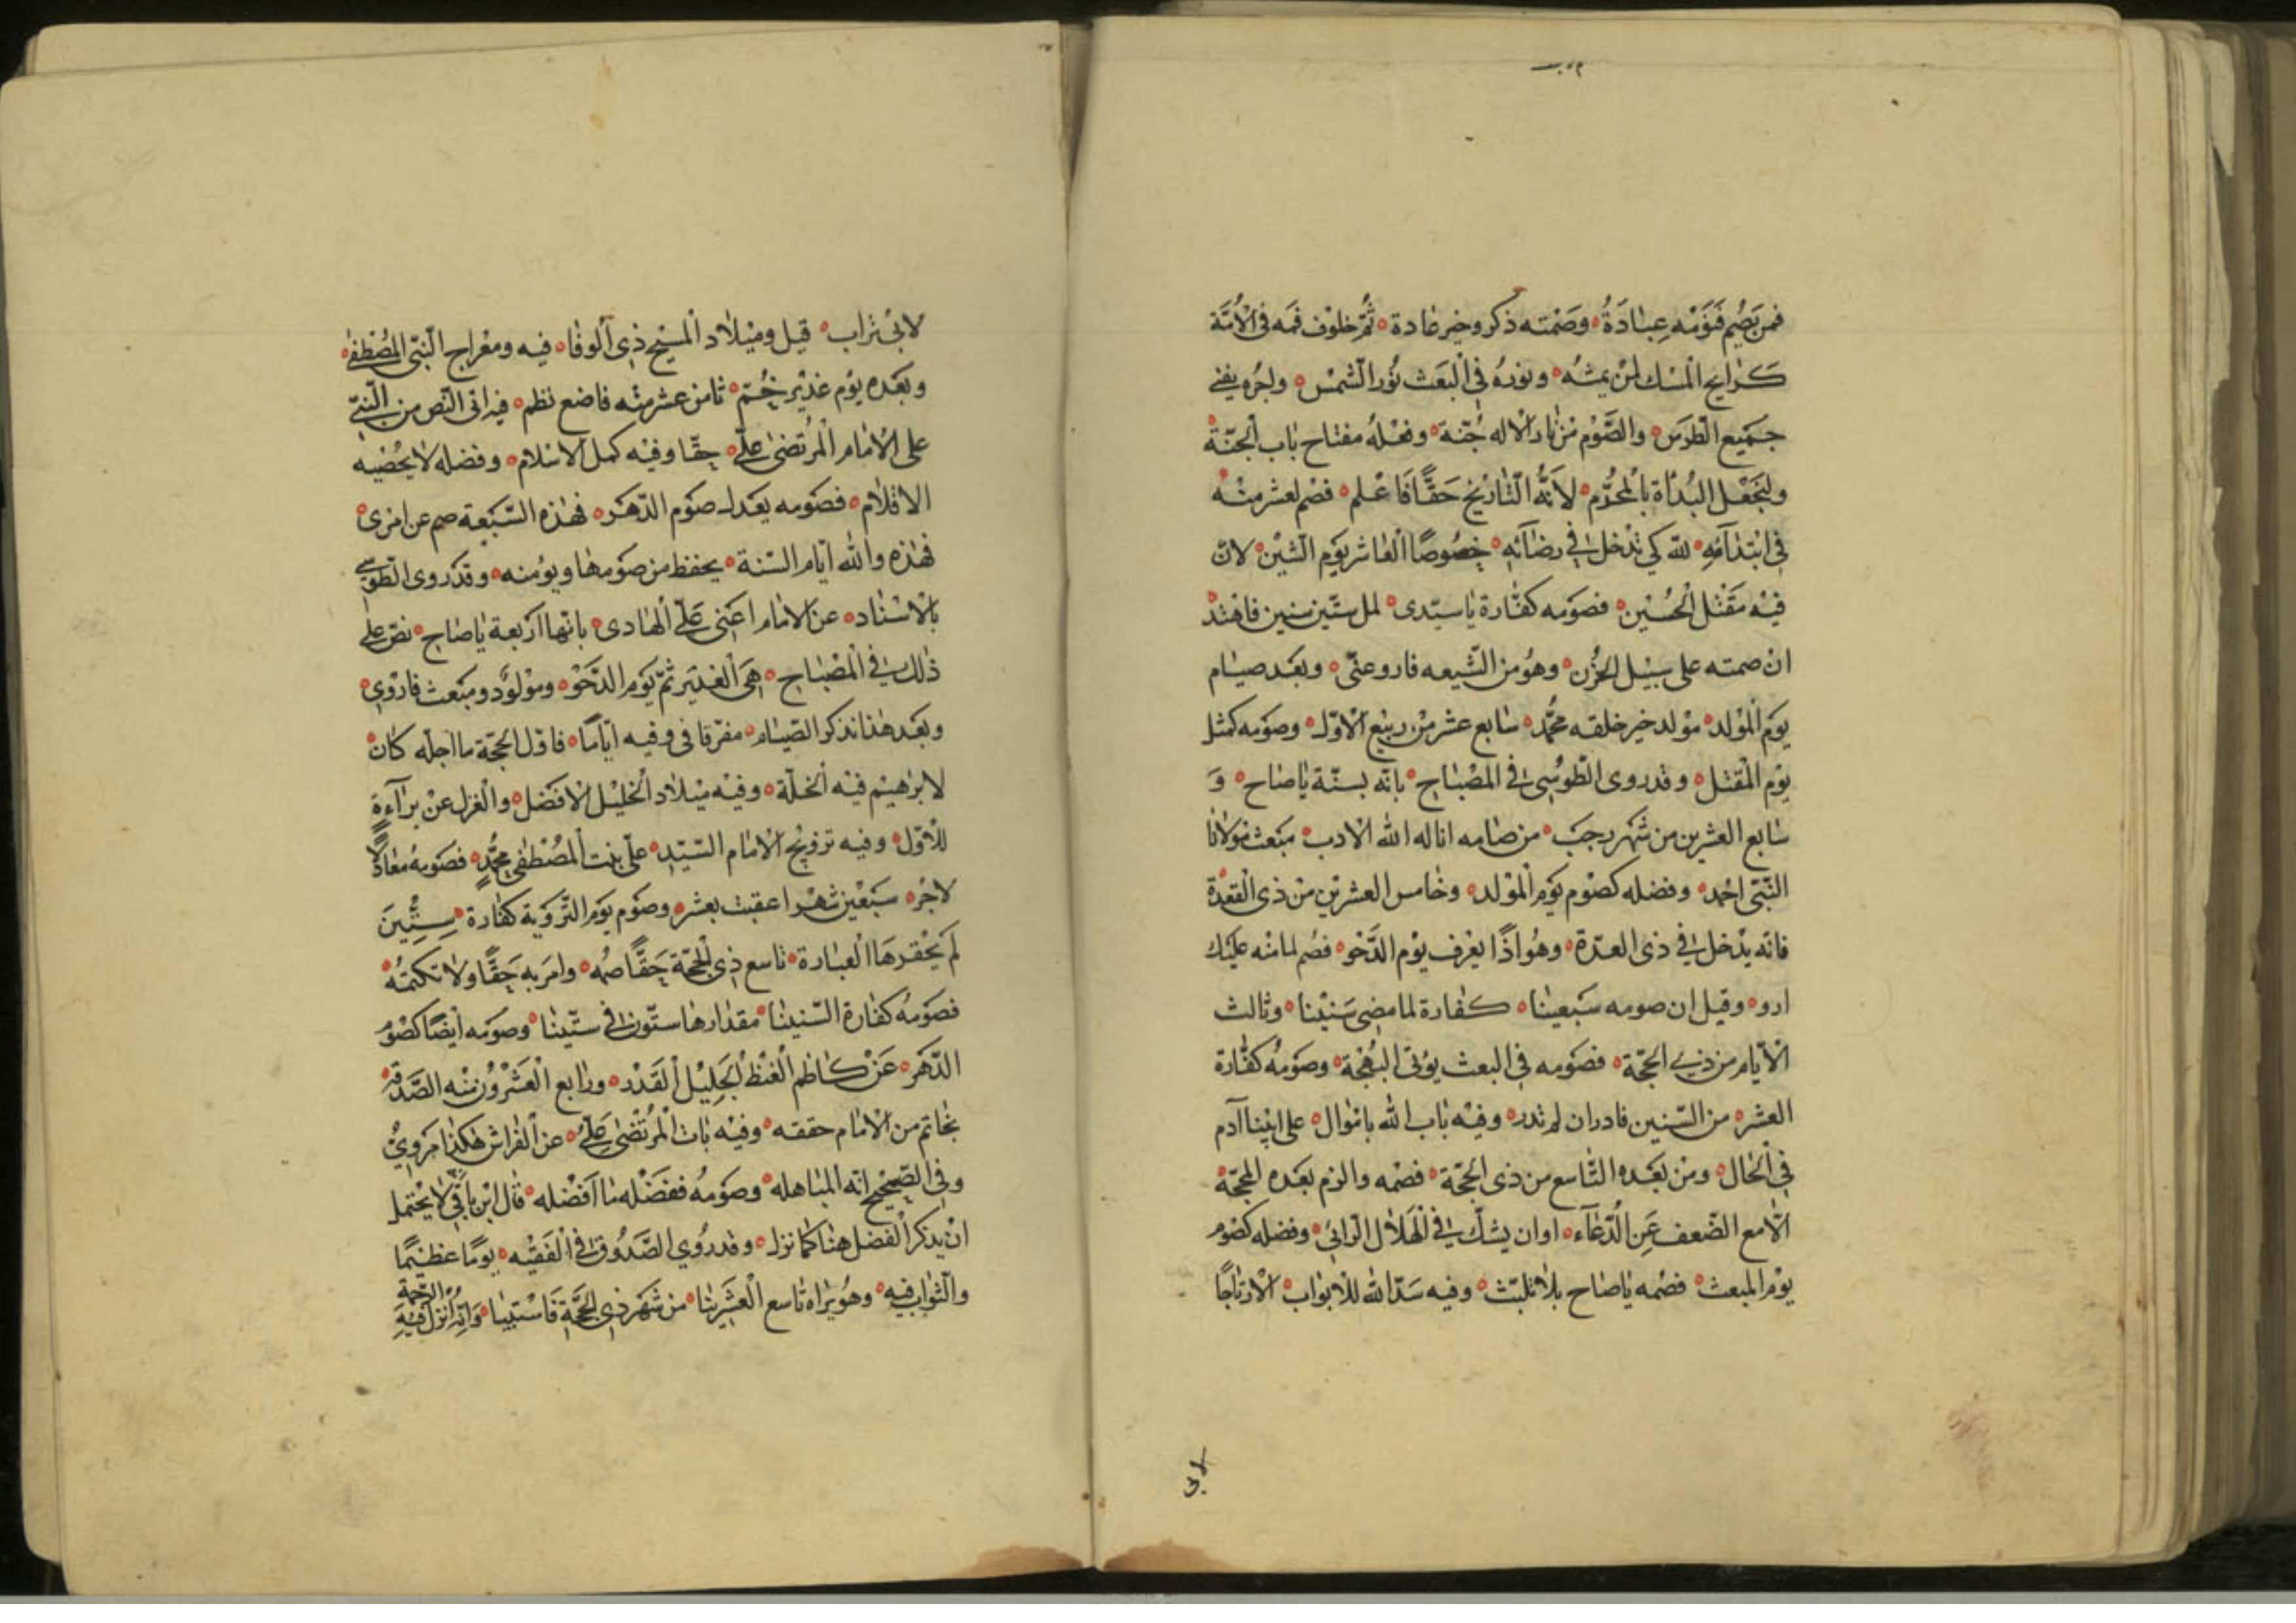 فمن يَصُم فَنَوْمُه عِبَادَةُ وصَمْته ذكر وخير عادة ثُمّ خلوف فمه فى الأُمّة
كرايح المسك لمن يمسه ونوره في البعث نُور الشمس واجره يفنى
جميع الطرس والصَّوْم من نار الاله جُنّة وفعله مفتاح باب الجنّة
ولنجعل البُدْأة بالمحرّم لانّه التاريخ حَقًّا فاعلم فصم لعشر منه
في ابتدآئه لله كي تدخل في رضآئه خصُوصًا العاشر يوم الشين لانّ
فيه مَقْتل الحُسين فصومه كفّارة يا سيّدى لستّين سنين فاهتد
ان صمته على سبيل الحُزن وهُو من الشّيعه فارو عنّى وبعد صيام
يوم المولد مولد خير خلقه محمّد سابع عشر من ربيع الاوّل وصومه كمثل
يوم المقتل وقد روى الطّوسى في المصباح بانّه بسنّة يا صاح وَ
سابع العشرين من شهر رجب من صامه اناله الله الارب مبعث مولانا
النّبّى احمد وفضله كصوم يوم المولد وخامس العشرين من ذى القعدة
فانّه يدخل في ذى العدّة وهُو اذًا يعرف يوم الدَّحْو فصُم لما منه عليك
ارو وقيل ان صومه سبعينا كفارة لما مضى سنينا وثالث
الايّام من ذي الحجّة فصومه في البعث يؤتى البهجة وصومُه كفّارة
العشر من السّنين فادر ان لم تدر وفيه تاب الله يا موال على ابينا آدم
في الحال ومن بعده التّاسع من ذى الحجّة فصمه والزم بعده المحجّة
الّا مع الضّعف عَنِ الدُّعآء او ان يشكّ في الهلال الرائى وفضله كصوم
يوم المبعث فصمه يا صاح بلا تلبّث وفيه سَدّ الله للابواب الا رتاجًا
لابى
لابى تراب قيل وميلاد المسيح ذى الوفا فيه ومعراج النّبّى المُصطفى
وبعده يوم غدير خُمّ ثامن عشر منه فاضع نظم فيه اتى النّص من النّبيّ
على الامام المرتضىٰ علىّ حقّا وفيه كمل الاسلام وفضله لا يُحصيه
الاقلام فصومه يعدل صوم الدّهر فهذه السّبعة صم عن امرى
فهذه والله ايّام السّنة يحفظ من صومها ويؤمنه وقد روى الطّوسي
بالاسناد عن الامام اعنى علىّ الهادى بانّها اربعة يا صاح نصّ على
ذلك في المصباح هى الغدير ثمّ يوم الدَّحْو ومولُود ومبعث فاروى
وبعد هذا نذكر الصّيام مفرّقا فى وفيه ايّامًا فاوّل الحجّة ما اجلّه كان
لابرهيم فيه الخلّة وفيه ميلاد الخليل الافضل والعزل عن برآءة
للاوّل وفيه تزويج الامام السّيّد علىّ بنت المُصطفى محمّدٍ فصومهُ معادلًا
لاجره سبعين شهرا عقبت بعشر وصوم يوم التّرويَة كفّارة سِتِّينَ
لم يحقرهَا العبارة تاسع ذى الحجّة حَقًّا صُمه وامر به حَقًّا ولا تكتمُه
فصومُه كفّارة السّنينا مقدارها ستّون في ستّينا وصومه ايضًا كصوم
الدّهر عَنْ كاظم الغيظ الجَلِيل القَدْر ورابع العشرون منه الصَّدقة
بخاتم من الامام حققه وفيه بات المرتضى عَلىّ عن الفراش هكذا مَروىُّ
وفى الصّحيح انّه المباهله وصومُه ففَضْله ما افضله قال ابن باقى لا يحتمل
ان يذكر الفضل هنا كما نزل وقد رُوي الصَّدُوق في الفقيه يومًا عظيمًا
والثّواب فيه وهُو يراه تاسع العشرينا من شهر ذى الحجّة فاستبينا وَانّه اُنزل فيه الرّحمة